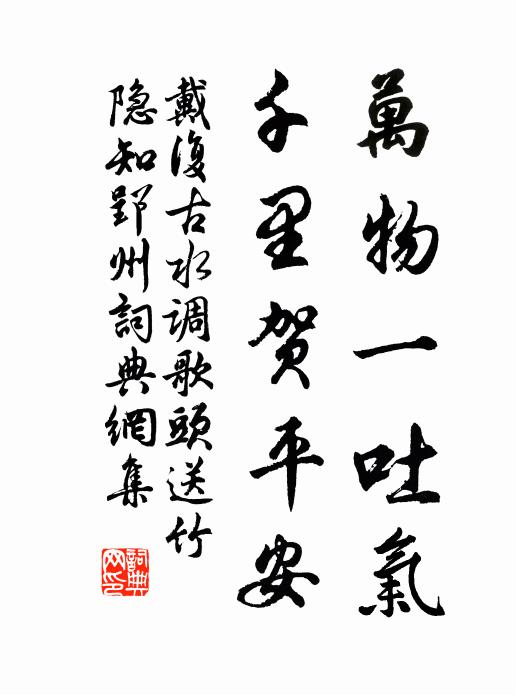 萬物一吐氣
千里賀平安
戴復古水调歌頭送竹
隐知郢州詞典網集
詞典网印